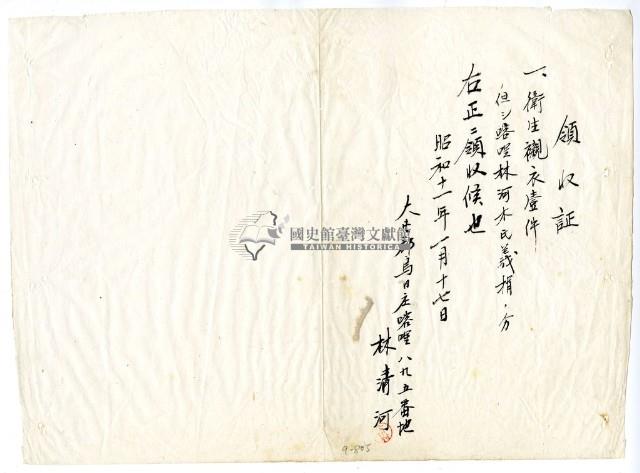 領収証
一、衛生襯衣壹件
但シ喀哩林河木氏義捐ノ分
右正ニ領収候也
昭和十一年一月十七日
大屯郡烏日庄喀哩八九五番地
林清河
國史館臺灣文獻館
TAIWAN HISTORICA